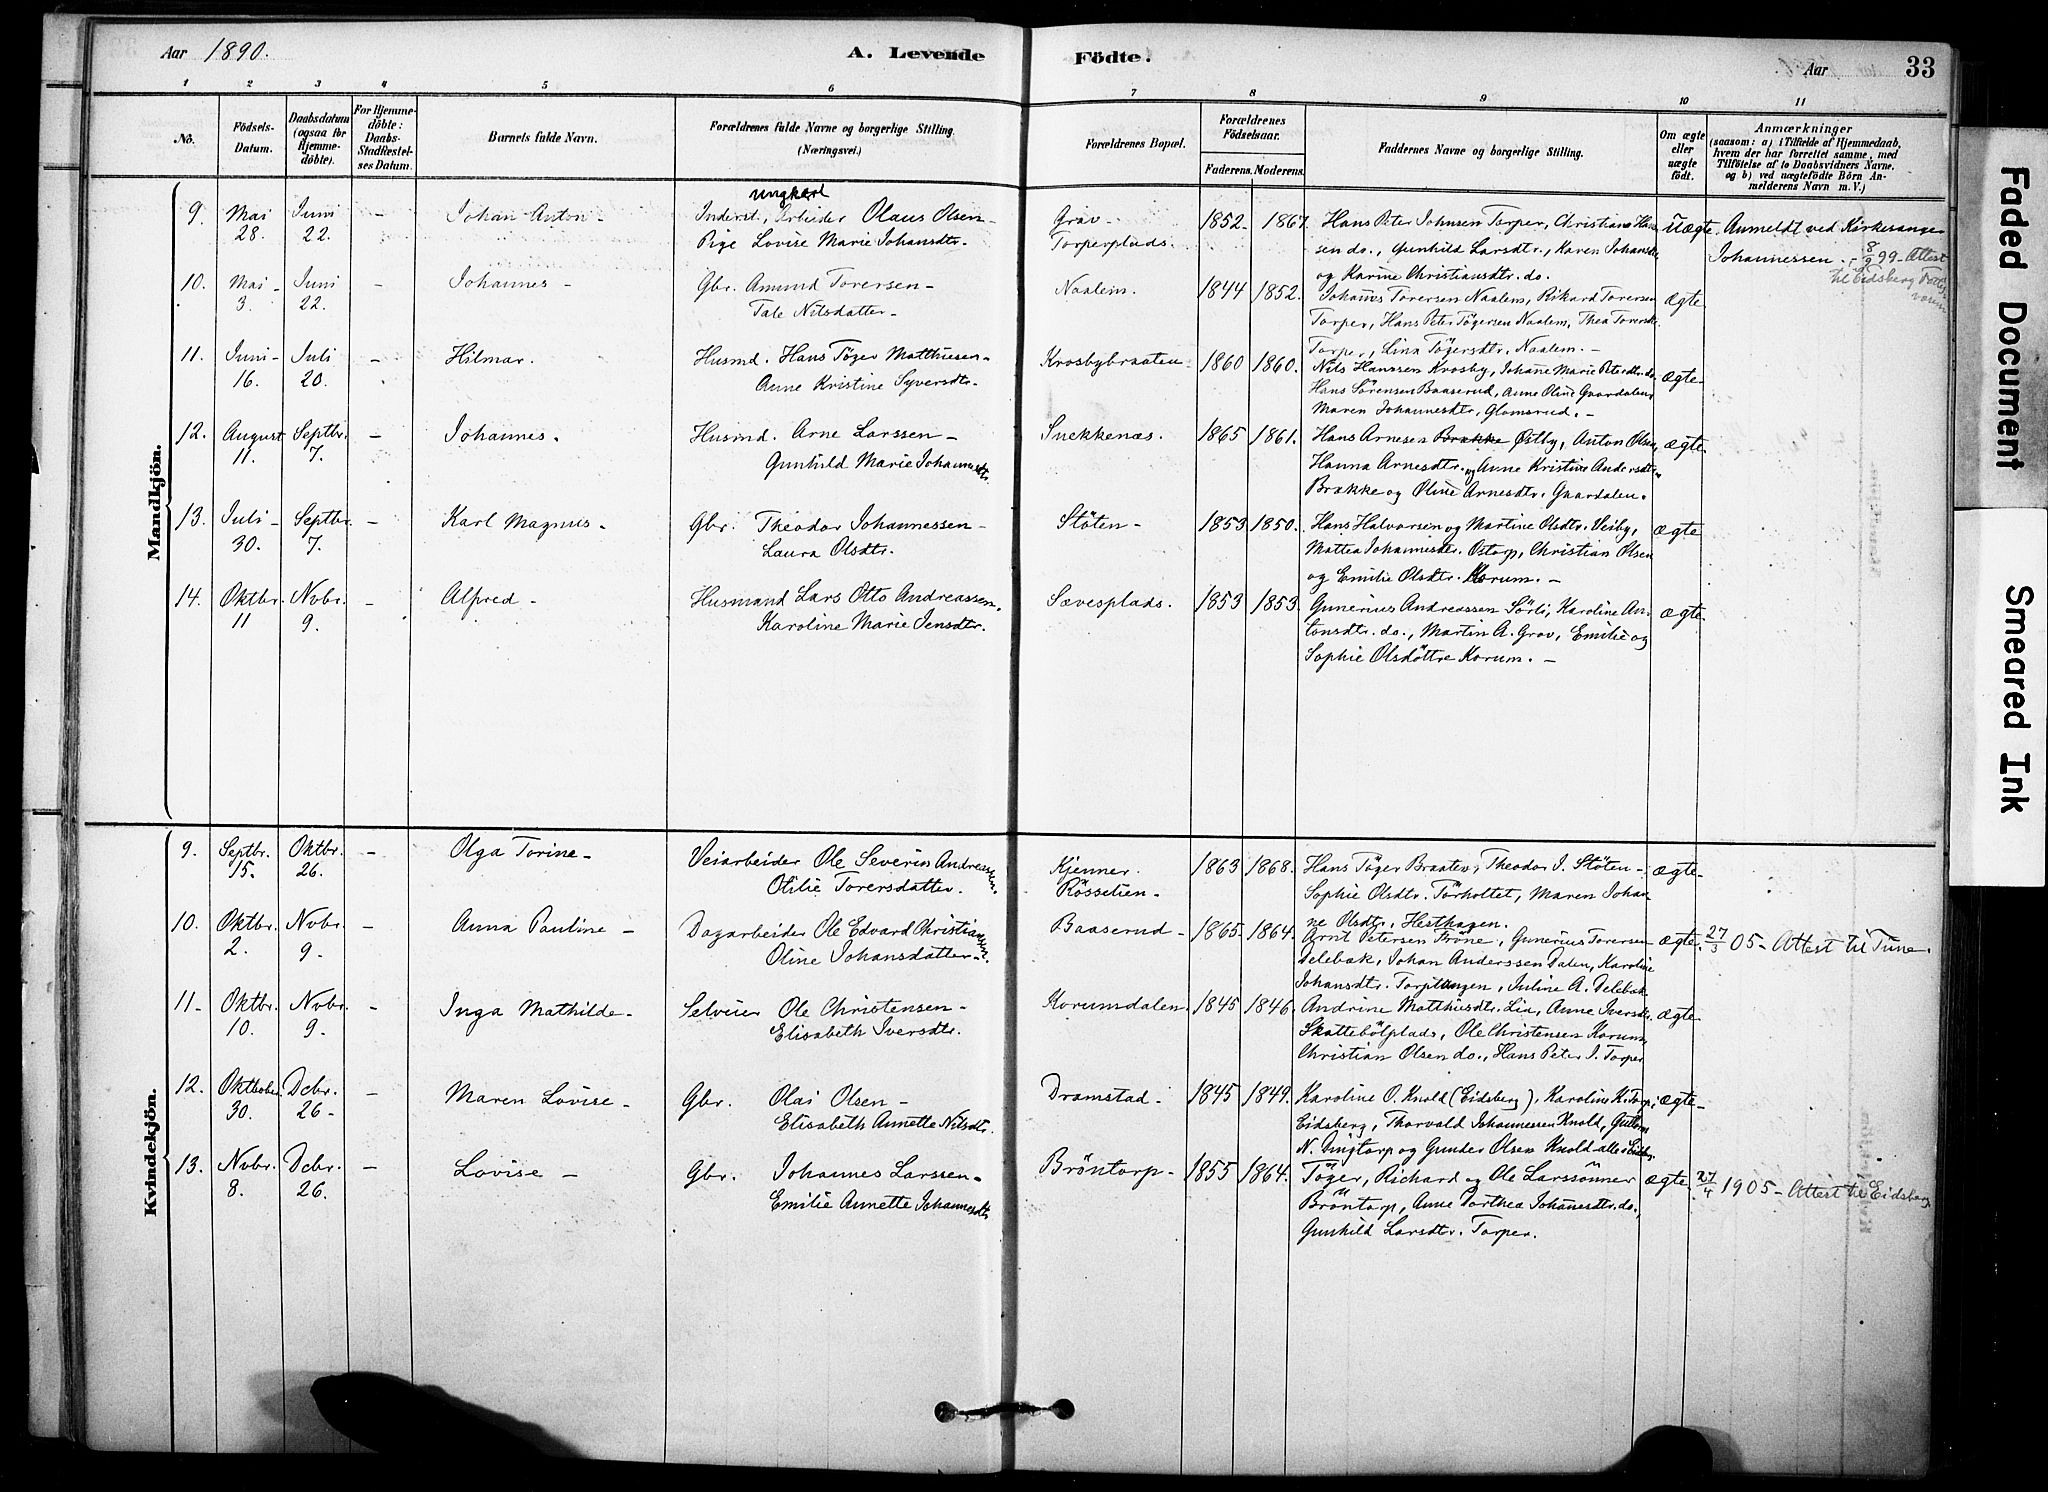 Aar 1890.
A. Levende
Födte.
Aar
33
1 2 3 4 5 6 7 8 9 10 11
No.
Födsels-
Datum.
Daabsdatum
(ogsaa for
Hjemme-
döbte).
For Hjemme-
döbte:
Daabs-
Stadfæstel-
ses Datum.
Barnets fulde Navn.
Forældrenes fulde Navne og borgerlige Stilling.
(Næringsvei.)
Forældrenes Bopæl.
Forældrenes
Födselsaar.
Faderens. Moderens.
Faddernes Navne og borgerlige Stilling.
Om ægte
eller
uægte
födt.
Anmærkninger
(saasom: a) i Tilfælde af Hjemmedaab,
hvem der har forrettet samme, med
Tilföielse af to Daabsvidners Navne.
og b) ved uægtefödte Börn An-
melderens Navn m. V.)
Mandkjön.
9. Mai 28. Juni 22. - Johan Anton -
ungkarl
Inderst, Arbeider Olaus Olsen -
Pige Lovise Marie Johansdtr.
Grav
Torperplads.
1852. 1867.
Hans Peter Johnsen Torper, Christians Han-
sen do., Gunhild Larsdtr., Karen Johansdtr
og Karine Christiansdtr. do.
Uægte.
Anmeldt ved Kirkesanger
Johannessen. - 8/9 99 - Attest
til Eidsberg
10. Mai 3. Juni 22. - Johannes -
Gbr. Amund Torersen -
Tale Nilsdatter -
Naalem.
1844 1852.
Johans Torersen Naalem, Rikard Torersen
Torper, Hans Peter Tögersen Naalem, Thea Torersdtr.
Torper, Lina Tögersdtr. Naalem. -
ægte
11. Juni 16. Juli 20. - Hilmar.
Husmd. Hans Töger Matthiesen -
Anne Kristine Syversdtr.
Krosbybraaten
1860 1860.
Nils Hanssen Krosby, Johane Marie Petersdtr. do.
Hans Sörensen Baaserud, Anne Oline Gaardalen,
Maren Johannesdtr. Glomsrud. -
ægte
12. August 11. Septbr. 7. - Johannes.
Husmd. Arne Larssen -
Gunhild Marie Johannesdtr.
Snekkenæs.
1865 1861.
Hans Arnesen Brække Östby, Anton Olsen,
Hanna Arnesdtr. og Anne Kristine Andersdtr.
Brække og Oline Arnesdtr. Gaardalen.
ægte
13. Juli 30. Septbr. 7. - Karl Magnus -
Gbr. Theodor Johannessen -
Laura Olsdtr.
Stöten -
1853 1850.
Hans Halvorsen og Martine Olsdtr. Veiby,
Mattea Johannesdtr. Ostorp, Christian Olsen
og Emilie Olsdtr. Korum. -
ægte
14. Oktbr. 11 Nvbr. 9. - Alfred -
Husmand Lars Otto Andreassen,
Karoline Marie Jensdtr.
Sævesplads.
1853 1853.
Gunerius Andreassen Sörli, Karoline An-
tonsdtr. do., Martin A. Grav, Emilie og
Sophie Olsdöttre Korum. -
ægte
Kvindekjön.
9. Septbr. 15. Oktbr. 26. - Olga Torine -
Veiarbeider Ole Severin Andreassen.
Otilie Torersdatter.
Kjenner.
Rössetien -
1863 1868.
Hans Töger Braaten, Theodor J. Stöten -
Sophie Olsdtr. Törholtet, Maren Johan-
ne Olsdtr. Hesthagen.
ægte
10. Oktbr. 2. Nvbr. 9. - Anna Pauline -
Dagarbeider Ole Edvard Christiansen.
Oline Johansdatter -
Baaserud -
1865. 1864.
Arnt Petersen Fröne, Gunerius Torersen
Delebæk, Johan Anderssen Dalen, Karoline
Johansdtr. Torptangen, Juline A. Delebæk
ægte
27/3 05 - Attest til Tune.
11 - Oktbr. 10. Nvbr. 9. - Inga Mathilde -
Selveier Ole Christensen -
Elisabeth Iversdtr.
Korumdalen
1845 1846.
Andrine Matthisdtr. Lie, Anne Iversdtr.
Skattebölplads, Ole Christensen Korum,
Christian Olsen do., Hans Peter J. Torper
ægte
12. Oktbober 30. Dcbr. 26 - - Maren Lovise -
Gbr. Olai Olsen -
Elisabeth Annette Nilsdtr.
Dramstad -
1845 1849.
Karoline O. Knold (Eidsberg), Karoline K. Torp,
Eidsberg, Thorvald Johannessen Knold,
N. Dingtorp og Gunder Olsen Knold alle i Eidsb.
ægte
13. Nvbr. 8. Dcbr. 26. - Lovise -
Gbr. Johannes Larssen -
Emilie Annette Johannesdtr
Bröntorp -
1855 1864.
Töger, Richard og Ole Larssönner
Bröntorp, Anne Dorthea Johanesdtr. do.,
Gunhild Larsdtr. Torper.
ægte
27/4 1905 - Attest til Eidsberg.
Faded Document
Smeared Ink